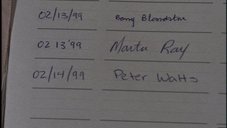 02/13/99
02 13 '99 Marta Ray
02/14/99 Peter Watts